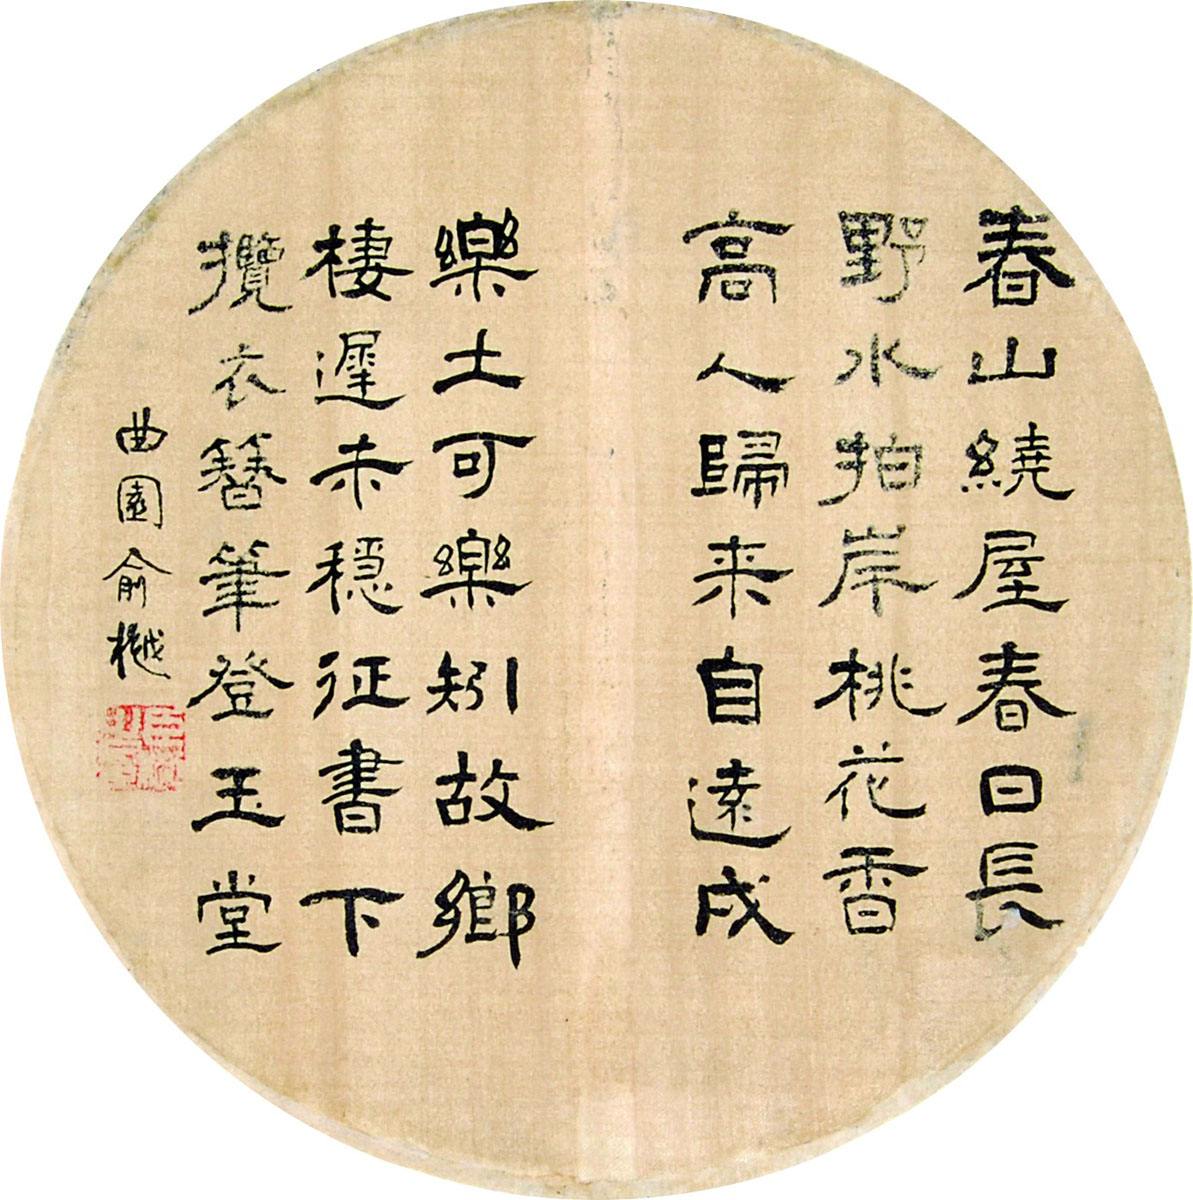 春山繞屋春日長
野水拍岸桃花香
高人歸来自遠戍
樂土可樂矧故鄉
棲遲未穩征書下
攬衣簪筆登玉堂
曲園俞樾